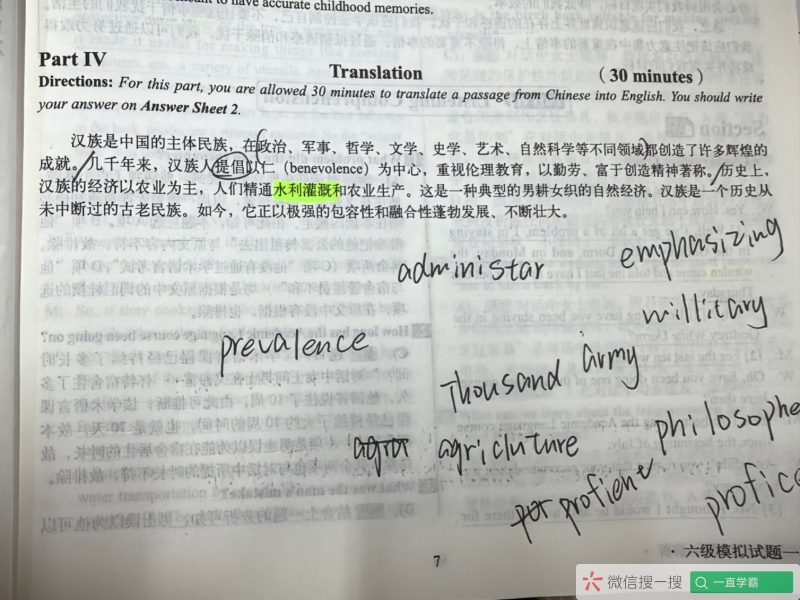 meant to have accurate childhood memories.
Part IV
Translation
(30 minutes)
Directions: For this part, you are allowed 30 minutes to translate a passage from Chinese into English. You should write
your answer on Answer Sheet 2.
汉族是中国的主体民族，在政治、军事、哲学、文学、史学、艺术、自然科学等不同领域都创造了许多辉煌的
成就。几千年来，汉族人提倡以仁（benevolence）为中心，重视伦理教育，以勤劳、富于创造精神著称。历史上，
汉族的经济以农业为主，人们精通水利灌溉和农业生产。这是一种典型的男耕女织的自然经济。汉族是一个历史从
未中断过的古老民族。如今，它正以极强的包容性和融合性蓬勃发展、不断壮大。
administar
emphasizing
millitary
prevalence
army
Thousand
philosophe
agricluture
profiene
profice
7
· 六级模拟试题一
微信搜一搜
一直学霸